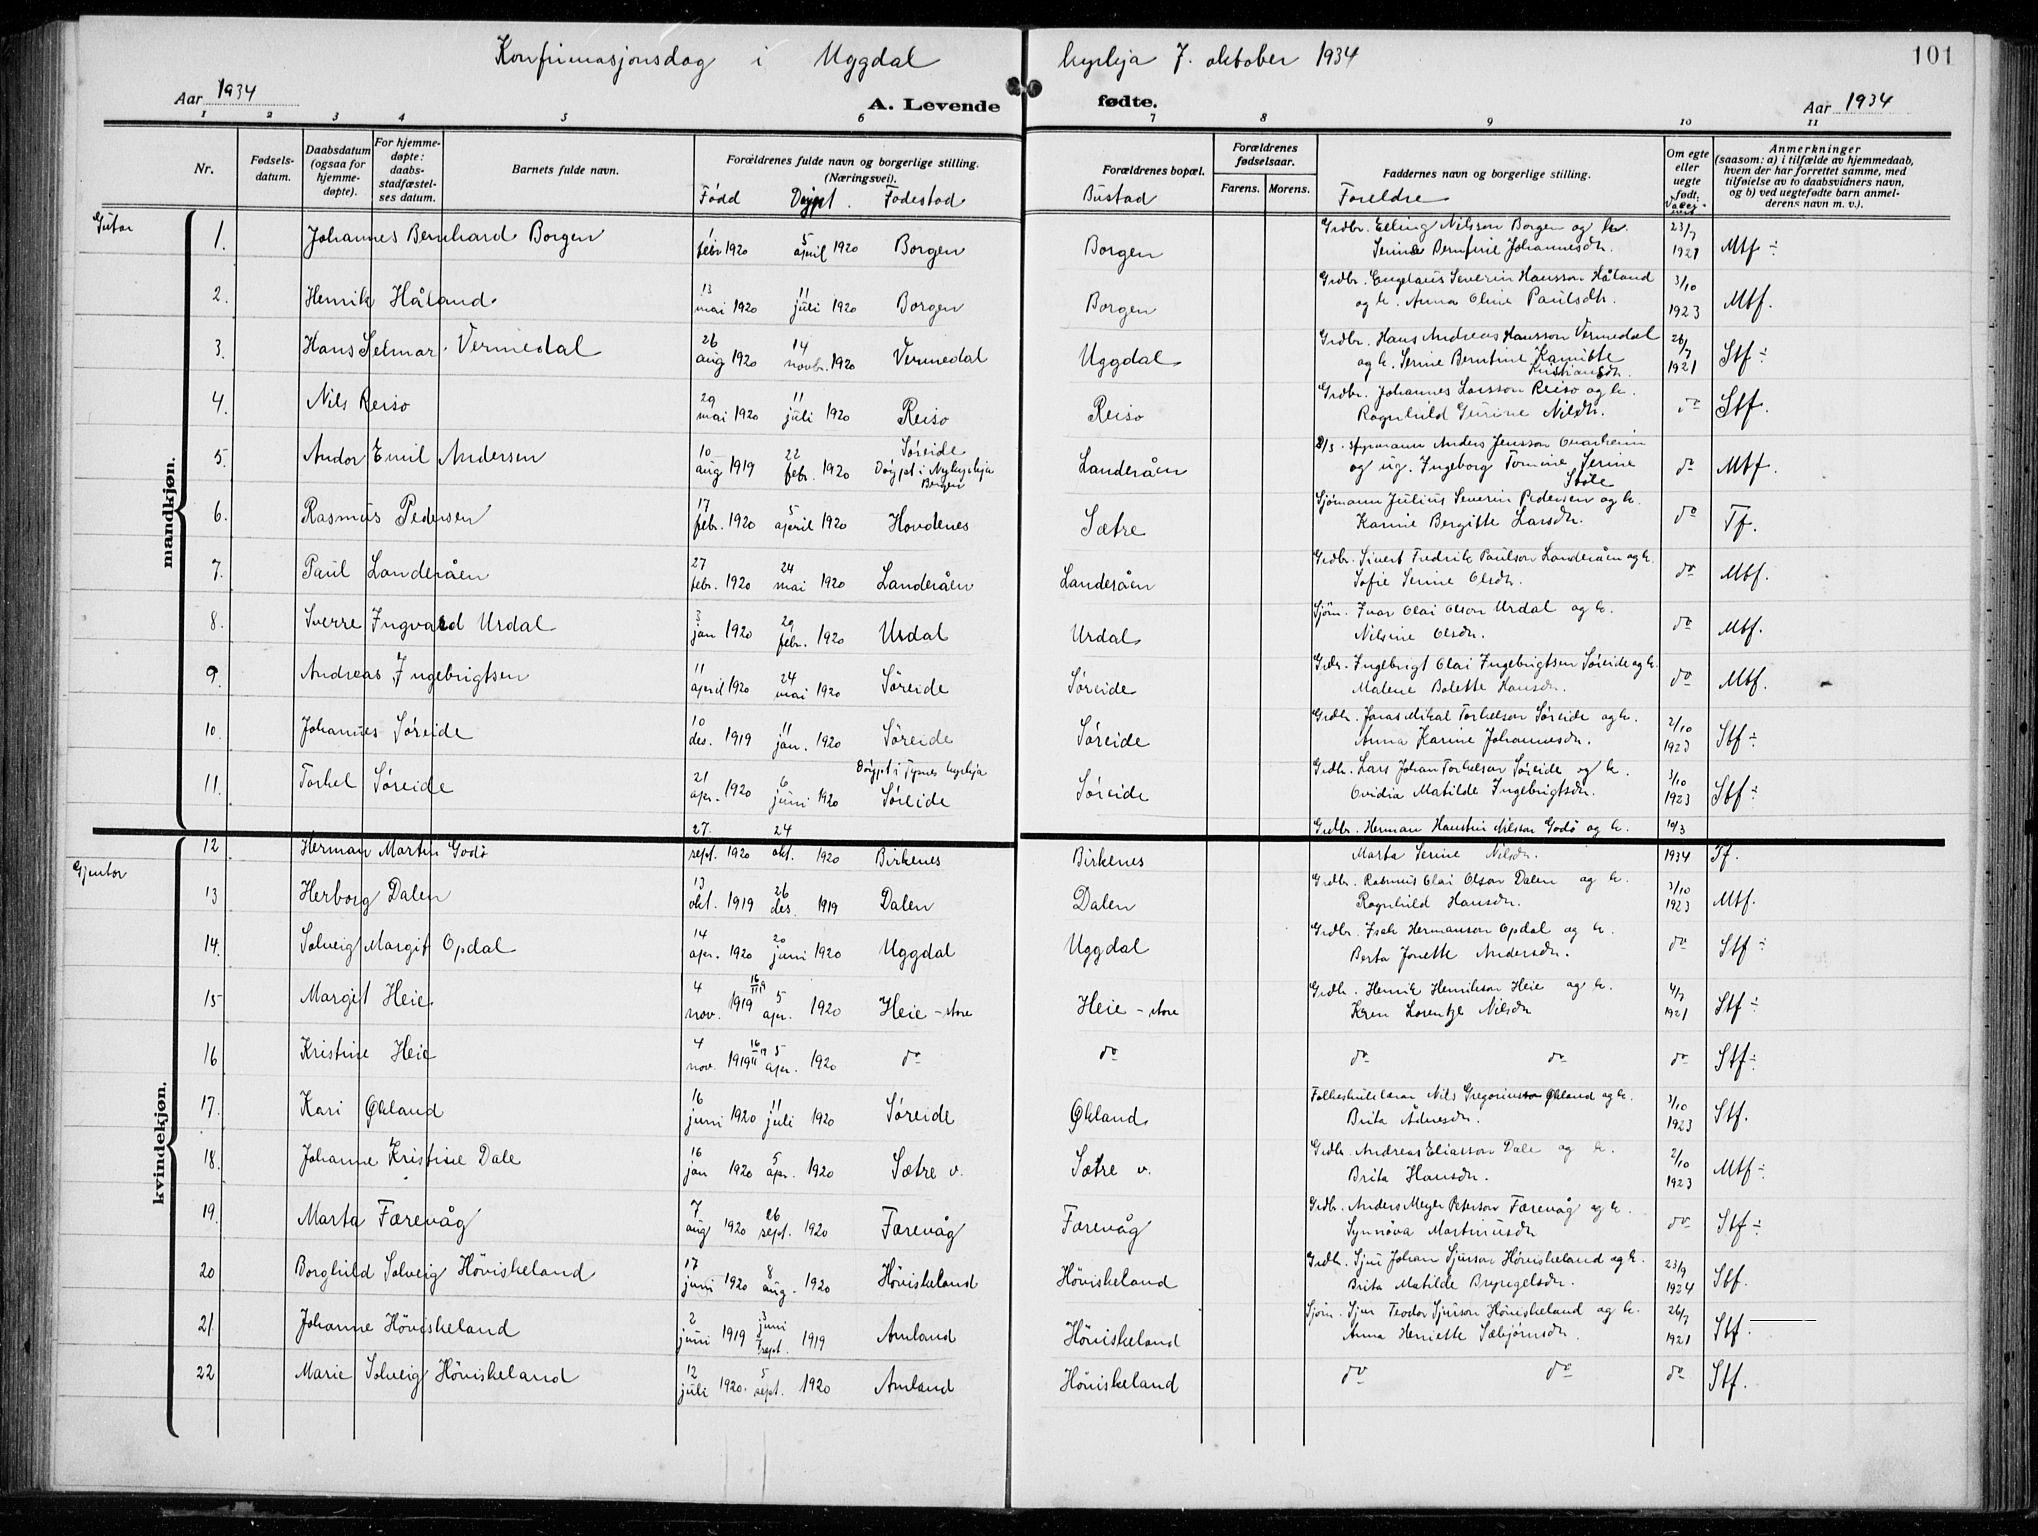 Konfirmasjonsdag i Uggdal kyrkja 7. oktober 1934
101
Aar 1934
A. Levende fødte.
Aar 1934
1 2 3 4 5 6 7 8 9 10 11
Nr.
Fødsels-
datum.
Daabsdatum
(ogsaa for
hjemme-
døpte).
For hjemme-
døpte:
daabs-
stadfæstel-
ses datum.
Barnets fulde navn.
Forældrenes fulde navn og borgerlige stilling.
(Næringsvei).
Fødd Døypt. Fødestad
Forældrenes bopæl.
Bustad
Forældrenes
fødselsaar.
Farens. Morens.
Faddernes navn og borgerlige stilling.
Foreldre
Om egte
eller
uegte
født.
Anmerkninger
(saasom: a) i tilfælde av hjemmedaab,
hvem der har forrettet samme, med
tilføielse av to daabsvidners navn,
og b) ved uegtefødte barn anmel-
derens navn m. v.).
Gutar
mandkjøn.
1. Johannes Bernhard Borgen 1 febr 1920 5 april 1920 Borgen Borgen Grdbr. Elling Nilsson Borgen og h. 23/7
Serine Bernfine Johannesdr. 1921 Mtf ÷
2. Henrik Håland 13 mai 1920 11 juli 1920 Borgen Borgen Grdbr. Engelaus Severin Hansson Håland 3/10
og h. Anna Oline Paulsdr. 1923 Mtf.
3. Hans Selmar Vermedal 26 aug 1920 14 novbr. 1920 Vermedal Uggdal Grdbr. Hans Andreas Hansson Vermedal 26/7
og h. Serine Berntine Kamitte 1921 Stf ÷
Kristiansdr.
4. Nils Reisø 29 mai 1920 11 juli 1920 Reisø Reisø Grdbr. Johannes Larsson Reisø og h.
Ragnhild Gurine Nilsdr. do Stf.
5. Andor Emil Andersen 10 aug 1919 22 febr. 1920 Søreide Landeråen styrmann Anders Jensson
Døypt i Nykyrkja
Bergen
og ug. Ingeborg Tomine Serine do Mtf.
6. Rasmus Pedersen 17 febr. 1920 5 april 1920 Hovdenes Sætre Sjømann Julius Severin Pedersen og h.
Karine Bergitte Larsdr. do Tf.
7. Paul Landeråen 27 febr. 1920 24 mai 1920 Landeråen Landeråen Grdbr. Sivert Fredrik Paulson Landeråen og h.
Sofie Serine Olsdr. do Mtf.
8. Sverre Ingvald Urdal 3 jan 1920 29 febr. 1920 Urdal Urdal Sjøm. Ivar Olai Olson Urdal og h.
Nilsine Olsdr. do Mtf.
9. Andreas Ingebrigtsen 11 april 1920 24 mai 1920 Søreide Søreide Grdbr. Ingebrigt Olai Ingebrigtsen Søreide og h.
Malene Bolette Hansdr. do Mtf.
10. Johannes Søreide 10 des. 1919 11 jan. 1920 Søreide Søreide Grdbr. Jonas Mikal Torkelson Søreide og h. 2/10
Anna Karine Johannesdr. 1923 Stf ÷
11. Torkel Søreide 21 apr. 1920 6 juni 1920 Døypt i Tysnes kyrkja
Søreide Søreide Grdbr. Lars Johan Torkelson Søreide og h. 3/10
Ovidia Matilde Ingebrigtsdr. 1923 Stf ÷
12 Herman Martin Godø 27. sept. 1920 24 okt. 1920 Birkenes Birkenes Grdbr. Herman Hanstin Nilsson Godø og h. 10/3
Marta Serine Nilsdr. 1934 Tf.
Gjentor
kvindekjøn.
13 Herborg Dalen 13 okt. 1919 26 des. 1919 Dalen Dalen Grdbr. Rasmus Olai Olson Dalen og h. 3/10
Ragnhild Hansdr. 1923 Mtf.
14. Solveig Margit Opdal 14 apr. 1920 20 juni 1920 Uggdal Uggdal Grdbr. Isak Hermanson Opdal og h.
Berta Jonette Andersdr. do Stf ÷
15 Margit Heie. 4 nov. 1919 16/11 19 5 apr. 1920 Heie - store Heie - store Grdbr. Henrik Henrikson Heie og h. 4/7
Kren Lorentze Nilsdr 1921 Stf ÷
16 Kristine Heie 4 nov. 1919 16/11 19 5 apr. 1920 do do do do do Stf ÷
17. Kari Økland 16 juni 1920 11 juli 1920 Søreide Økland Folkeskulelærar Nils Gregoriusson Økland og h. 3/10
Brita Ådnesdr. 1923 Stf.
18. Johanne Kristine Dale 16 jan 1920 5 apr. 1920 Sætre v. Sætre v. Grdbr. Andreas Eliasson Dale og h. 2/10
Brita Hansdr. 1923 Mtf ÷
19. Marta Færevåg 7 aug 1920 26 sept. 1920 Færevåg Færevåg Grdbr. Anders Meyer Peterson Færevåg og h.
Synnøva Martinusdr do Stf ÷
20 Borghild Solveig Høviskeland 17 juni 1920 8 aug. 1920 Høviskeland Høviskeland Grdbr. Sjur Johan Sjurson Høviskeland og h. 23/9
Brita Matilde Bryngelsdr. 1924 Stf.
21. Johanne Høviskeland 2 juni 1919 3 juni sept. 1919 Amland Høviskeland Sjøm. Sjur Teodor Sjurson Høviskeland og h. 26/7
Anna Henriette Sæbjørnsdr. 1921 Stf.
22 Marie Solveig Høviskeland 12 juli 1920. 5 sept. 1920 Amland Høviskeland do do do Stf.